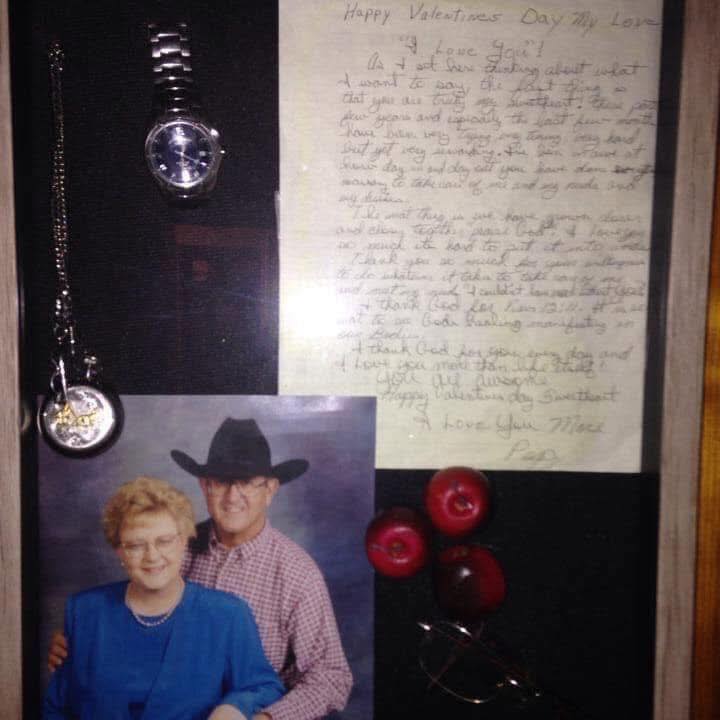 Happy Valentines Day My Love
"I Love You"!
As I set here thinking about what
I want to say, the first thing is
that you are truly my sweetheart. These past
few years and especially the last few months
have been very trying, very hard
but yet very rewarding. I've been at
how day in and day out you have done
to take care of me and my needs and
my desires.
The next thing is we have grown closer
and closer together, praise God! I Love you
so much its hard to put it into words
Thank you so much for your willingness
to do whatever it takes to take care of me
and I couldn't have
I thank God for 12:11. It is so
to see Gods healing manifesting in
our Bodies.
I thank God for you every day and
I Love you more than life itself!
You are Awesome
Happy Valentines day Sweetheart
I Love You More
Pap